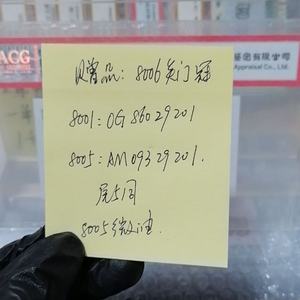 ACG
有限公司
Appraisal Co., Ltd.
赠品：8006关门冠
8001：OG86029201
8005：AM09329201.
尾5同
8005微油.